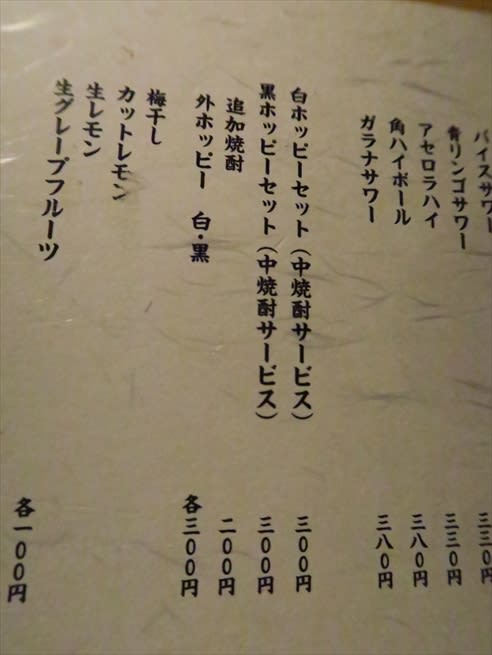 バイスサワー 三三〇円
青リンゴサワー 三三〇円
アセロラハイ 三八〇円
角ハイボール 三八〇円
ガラナサワー
白ホッピーセット(中焼酎サービス) 三〇〇円
黒ホッピーセット(中焼酎サービス) 三〇〇円
追加焼酎 二〇〇円
外ホッピー 白・黒 各三〇〇円
梅干し
カットレモン
生レモン
生グレープフルーツ 各一〇〇円